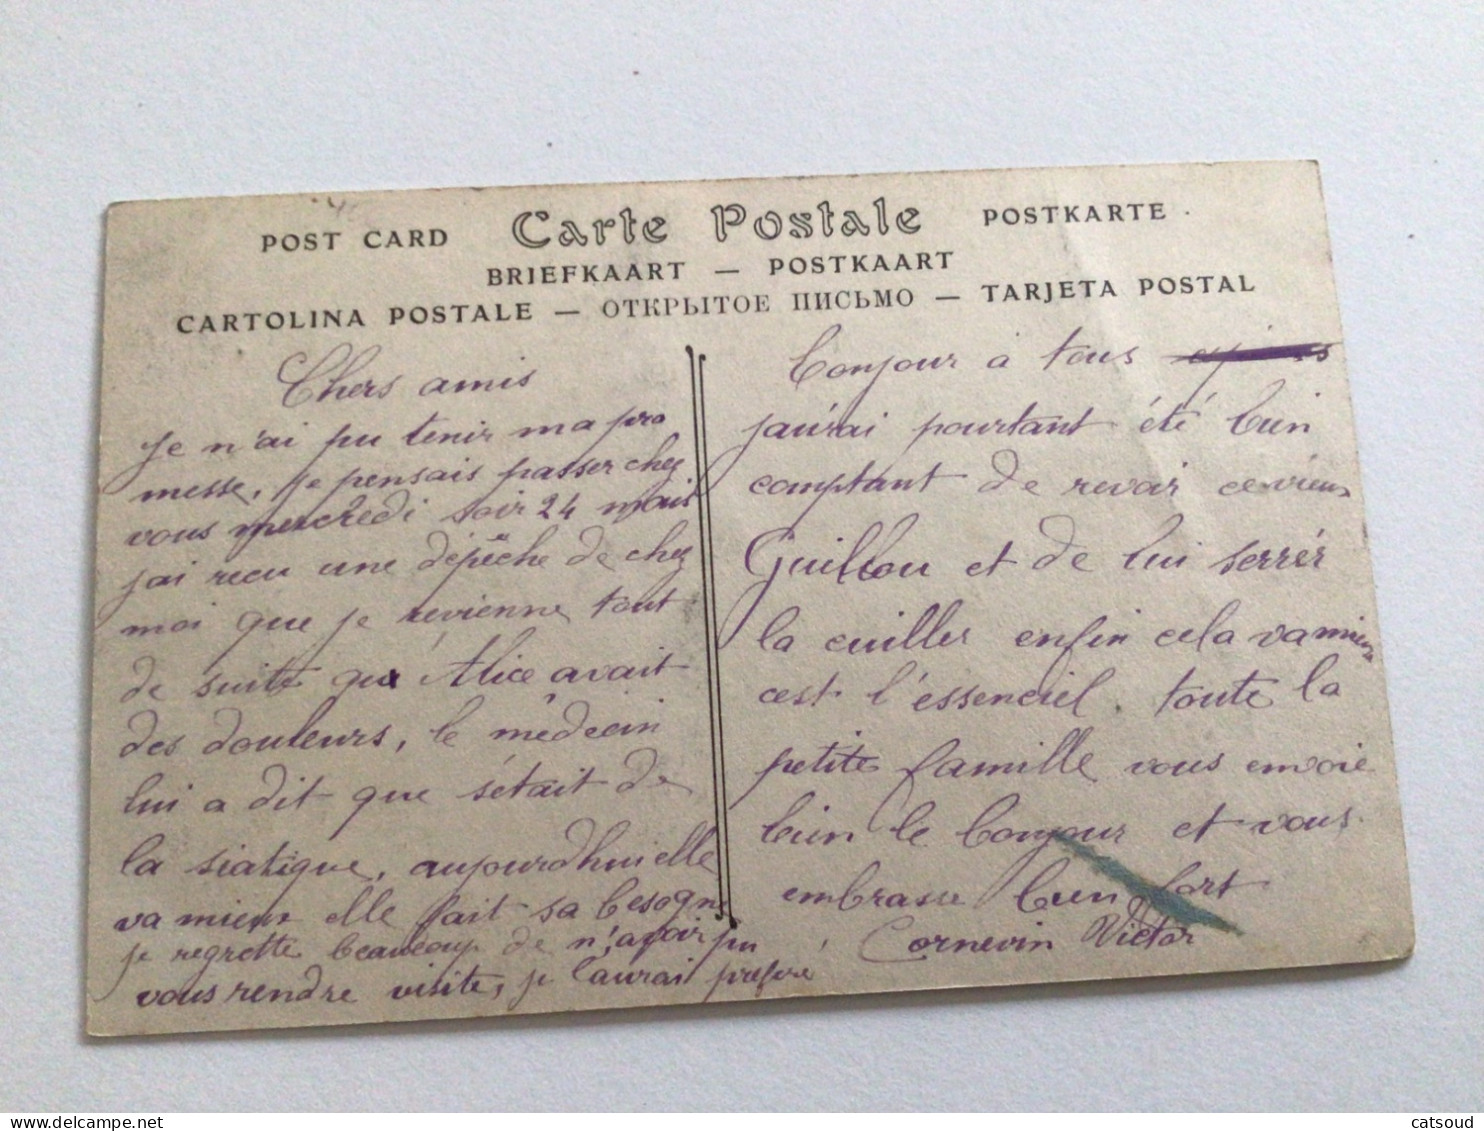 POST CARD Carte Postale POSTKARTE
BRIEFKAART — POSTKAART
CARTOLINA POSTALE — ОТКРЫТОЕ ПИСЬМО — TARJETA POSTAL
Chers amis
je n'ai pu tenir ma pro
messe, je pensais passer chez
vous mercredi soir 24 mais
j'ai recu une dépêche de chez
moi que je revienne tout
de suite que Alice avait
des douleurs, le médecin
lui a dit que s'était de
la siatique, aujourd'hui elle
va mieux elle fait sa besogne
je regrette beaucoup de n'avoir pu
vous rendre visite, je l'aurai préféré
Bonjour à tous
j'aurai pourtant été bien
comptant de revoir ce vieux
Guillou et de lui serrér
la cuiller enfin cela va mieux
cest l'essenciel. toute la
petite famille vous envoie
bien le bonjour et vous
embrasse bien fort
Cornevin Victor
catsoud